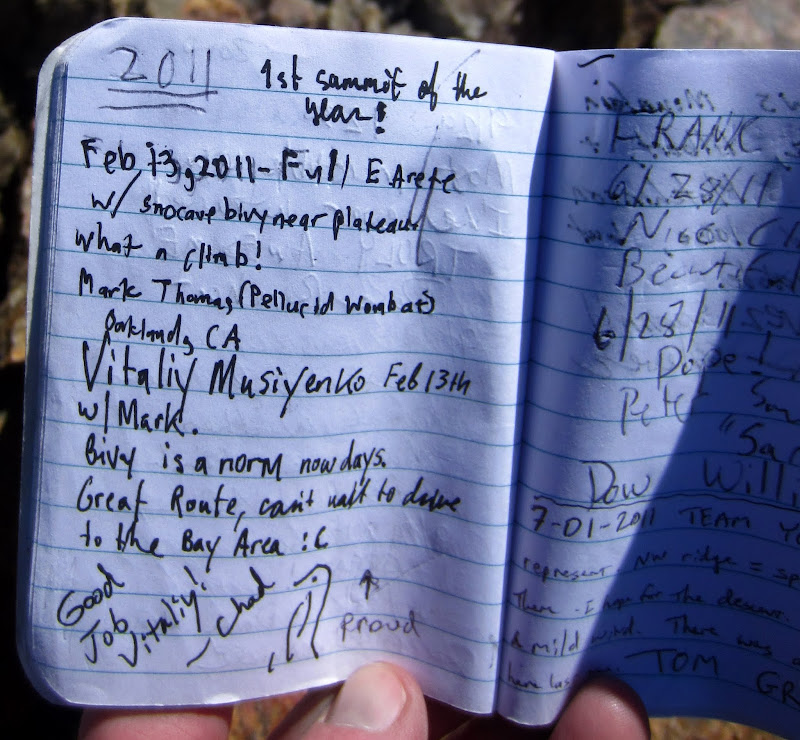 2011 1st sammit of the
year!
Feb 13, 2011 - Full E Arete
w/ snocave bivy near plateau
what a climb!
Mark Thomas (Pellucid Wombat)
Oakland, CA
Vitaliy Musiyenko Feb 13th
w/ Mark.
Bivy is a norm nowdays.
Great Route, can't wait to drive
to the Bay Area :C
Good
Job
Vitaliy!
- Chad
Proud
FRANK
6/28/11
Beautiful
6/28/11
Dope!
Peter
Dow Willi
7-01-2011 TEAM
represent NW ridge =
There. I hope for the descent.
A mild wind. There was
here TOM GR